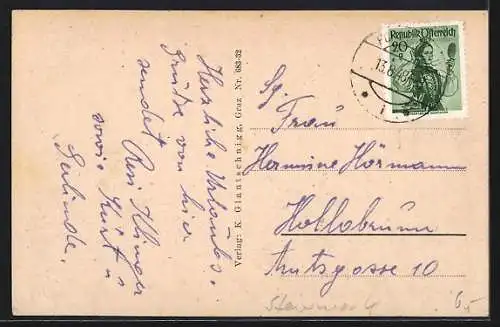 Herzliche Urlaubs-
Grüße von hier
sendet Resi Ilinger
sowie Kurt u
Gerlinde.
Verlag: K. Glantschnigg, Graz Nr. 683-32
Republik Österreich
20
13.8.49
Sg. Frau
Hermine Hörmann
Hollabrunn
Amtsgasse 10